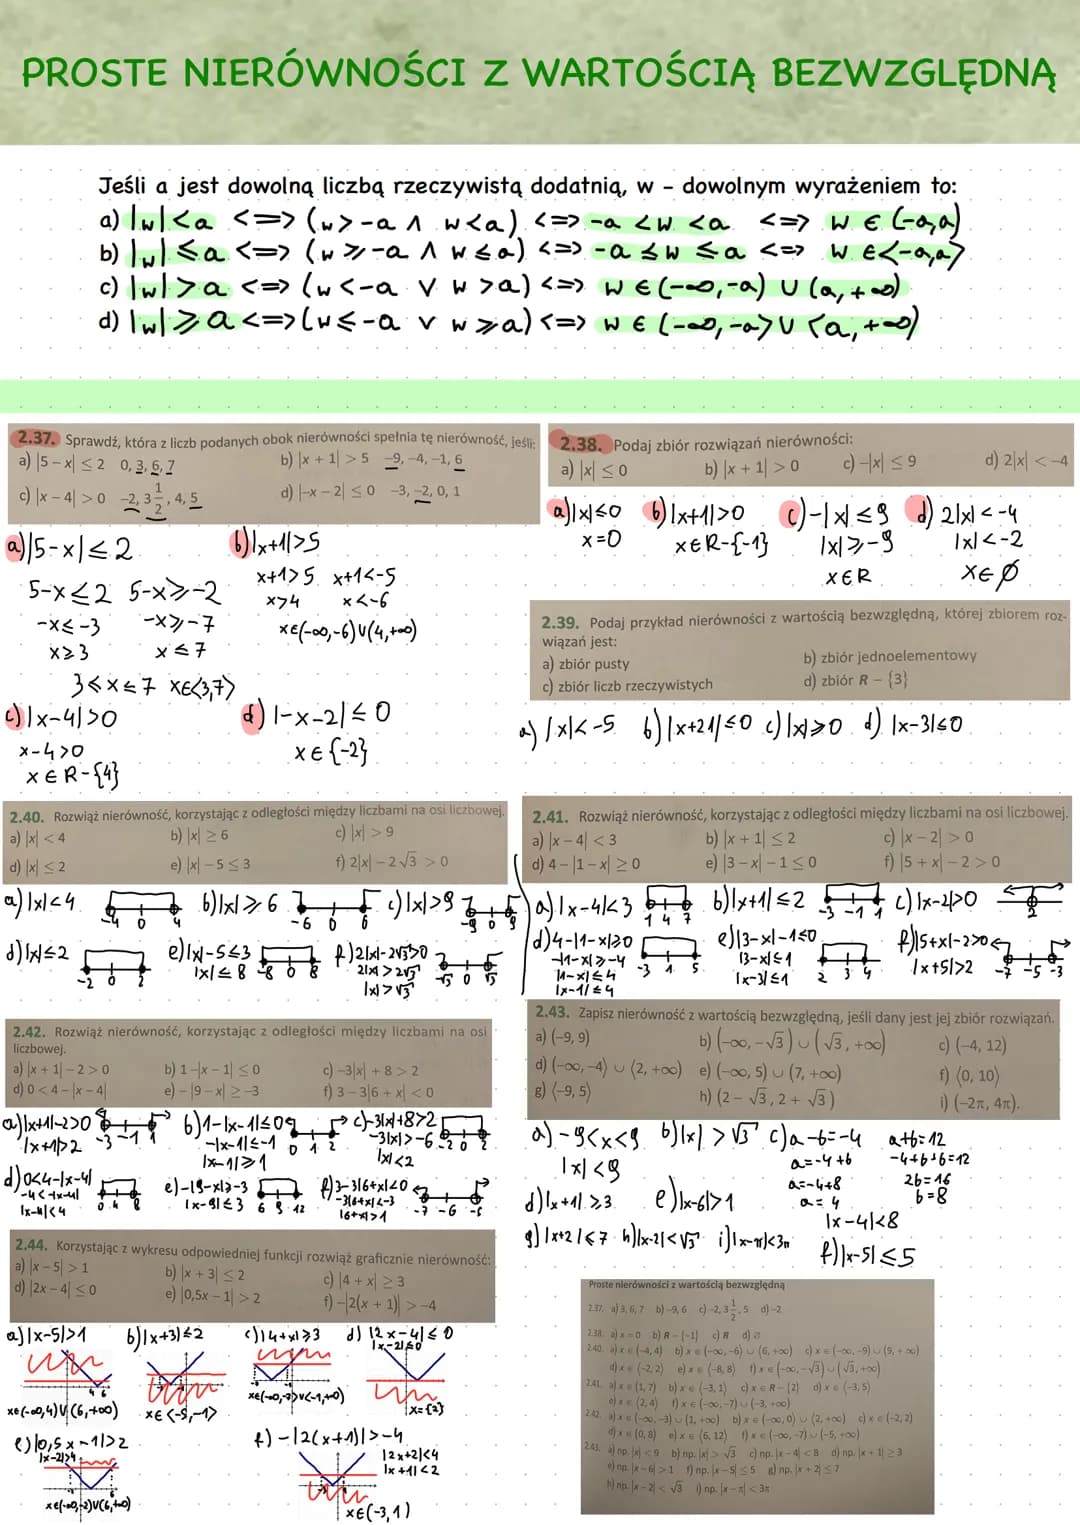 PROSTE NIERÓWNOŚCI Z WARTOŚCIĄ BEZWZGLĘDNĄ
Jeśli a jest dowolną liczbą rzeczywistą dodatnią, w - dowolnym wyrażeniem to:
a) |w|<a <=> (w>-a ∧ w<a) <=> -a<w<a <=> w ∈ (-a,a)
b) |w|≤a <=> (w≥-a ∧ w≤a) <=> -a≤w≤a <=> w ∈ <-a,a>
c) |w|>a <=> (w<-a ∨ w>a) <=> w ∈ (-∞,-a) ∪ (a,+∞)
d) |w|≥a <=> (w≤-a ∨ w≥a) <=> w ∈ (-∞,-a> ∪ <a,+∞)
2.37. Sprawdź, która z liczb podanych obok nierówności spełnia tę nierówność, jeśli:
a) |5 − x| ≤ 2 0, 3, 6, 7 b) |x + 1| > 5 −9, −4, −1, 6
c) |x − 4| > 0 −2, 3 1/2, 4, 5 d) |−x − 2| ≤ 0 −3, −2, 0, 1
a) |5-x|≤2
5-x≤2 5-x≥-2
-x≤-3 -x≥-7
x≥3 x≤7
3≤x≤7 x∈<3,7>
b) |x+1|>5
x+1>5 x+1<-5
x>4 x<-6
x∈(-∞,-6)∪(4,+∞)
c) |x-4|>0
x-4>0
x∈R-{4}
d) |-x-2|≤0
x∈{-2}
2.38. Podaj zbiór rozwiązań nierówności:
a) |x| ≤ 0 b) |x + 1| > 0 c) −|x| ≤ 9 d) 2|x| < −4
a) |x|≤0 b) |x+1|>0 c) -|x|≤9 d) 2|x|<-4
x=0 x∈R-{-1} |x|≥-9 |x|<-2
x∈R x∈∅
2.39. Podaj przykład nierówności z wartością bezwzględną, której zbiorem roz-
wiązań jest:
a) zbiór pusty b) zbiór jednoelementowy
c) zbiór liczb rzeczywistych d) zbiór R − {3}
a) |x|<-5 b) |x+21|≤0 c) |x|≥0 d) |x-3|≤0
2.40. Rozwiąż nierówność, korzystając z odległości między liczbami na osi liczbowej.
a) |x| < 4 b) |x| ≥ 6 c) |x| > 9
d) |x| ≤ 2 e) |x| − 5 ≤ 3 f) 2|x| − 2√3 > 0
a) |x|<4 -4 0 4 b) |x|≥6 -6 0 6 c) |x|>9 -9 0 9
d) |x|≤2 -2 0 2 e) |x|-5≤3 f) 2|x|-2√3>0
|x|≤8 -8 0 8 2|x|>2√3
|x|>√3 -√3 0 √3
2.41. Rozwiąż nierówność, korzystając z odległości między liczbami na osi liczbowej.
a) |x − 4| < 3 b) |x + 1| ≤ 2 c) |x − 2| > 0
d) 4 − |1 − x| ≥ 0 e) |3 − x| − 1 ≤ 0 f) |5 + x| − 2 > 0
a) |x-4|<3 1 4 7 b) |x+1|≤2 -3 -1 1 c) |x-2|>0 2
d) 4-|1-x|≥0 e) |3-x|-1≤0 f) |5+x|-2>0
-|1-x|≥-4 |3-x|≤1 |x+5|>2
|1-x|≤4 |x-3|≤1
|x-1|≤4
-3 1 5 2 3 4 -7 -5 -3
2.42. Rozwiąż nierówność, korzystając z odległości między liczbami na osi
liczbowej.
a) |x + 1| − 2 > 0 b) 1 − |x − 1| ≤ 0 c) −3|x| + 8 > 2
d) 0 < 4 − |x − 4| e) −|9 − x| ≥ −3 f) 3 − 3|6 + x| < 0
a) |x+1|-2>0 b) 1-|x-1|≤0 c) -3|x|+8>2
|x+1|>2 -3 -1 1 -|x-1|≤-1 0 1 2 -3|x|>-6 -2 0 2
|x-1|≥1 |x|<2
d) 0<4-|x-4| e) -|9-x|≥-3 f) 3-3|6+x|<0
-4<-|x-4| |x-9|≤3 6 9 12 -3|6+x|<-3
|x-4|<4 0 4 8 |6+x|>1 -7 -6 -5
2.43. Zapisz nierówność z wartością bezwzględną, jeśli dany jest jej zbiór rozwiązań.
a) (−9, 9) b) (−∞, −√3) ∪ (√3, +∞) c) (−4, 12)
d) (−∞, −4) ∪ ⟨2, +∞) e) (−∞, 5) ∪ (7, +∞) f) ⟨0, 10⟩
g) ⟨−9, 5⟩ h) (2 − √3, 2 + √3) i) (−2π, 4π).
a) -9<x<9 b) |x|>√3 c) a-b=-4 a+b=12
|x|<9 a=-4+b -4+b+b=12
a=-4+8 2b=16
a=4 b=8
|x-4|<8
d) |x+1|≥3 e) |x-6|>1
g) |x+2|≤7 h) |x-2|<√3 i) |x-π|<3π f) |x-5|≤5
2.44. Korzystając z wykresu odpowiedniej funkcji rozwiąż graficznie nierówność:
a) |x − 5| > 1 b) |x + 3| ≤ 2 c) |4 + x| ≥ 3
d) |2x − 4| ≤ 0 e) |0,5x − 1| > 2 f) −|2(x + 1)| > −4
a) |x-5|>1 b) |x+3|≤2 c) |4+x|≥3 d) |2x-4|≤0
|x-2|≤0
4 6
x∈(-∞,4)∪(6,+∞) x∈<-5,-1> x∈(-∞,-7>∪<-1,+∞) x={2}
e) |0,5x-1|>2 f) -|2(x+1)|>-4
|x-2|>4 |2x+2|<4
|x+1|<2
x∈(-∞,-2)∪(6,+∞) x∈(-3,1)
Proste nierówności z wartością bezwzględną
2.37. a) 3, 6, 7 b) −9, 6 c) −2, 3 1/2, 5 d) −2
2.38. a) x = 0 b) R − {−1} c) R d) ∅
2.40. a) x ∈ (−4, 4) b) x ∈ (−∞, −6⟩ ∪ ⟨6, +∞) c) x ∈ (−∞, −9) ∪ (9, +∞)
d) x ∈ ⟨−2, 2⟩ e) x ∈ ⟨−8, 8⟩ f) x ∈ (−∞, −√3) ∪ (√3, +∞)
2.41. a) x ∈ (1, 7) b) x ∈ ⟨−3, 1⟩ c) x ∈ R − {2} d) x ∈ ⟨−3, 5⟩
e) x ∈ ⟨2, 4⟩ f) x ∈ (−∞, −7) ∪ (−3, +∞)
2.42. a) x ∈ (−∞, −3) ∪ (1, +∞) b) x ∈ (−∞, 0⟩ ∪ ⟨2, +∞) c) x ∈ (−2, 2)
d) x ∈ (0, 8) e) x ∈ ⟨6, 12⟩ f) x ∈ (−∞, −7) ∪ (−5, +∞)
2.43. a) np. |x| < 9 b) np. |x| > √3 c) np. |x − 4| < 8 d) np. |x + 1| ≥ 3
e) np. |x − 6| > 1 f) np. |x − 5| ≤ 5 g) np. |x + 2| ≤ 7
h) np. |x − 2| < √3 i) np. |x − π| < 3π